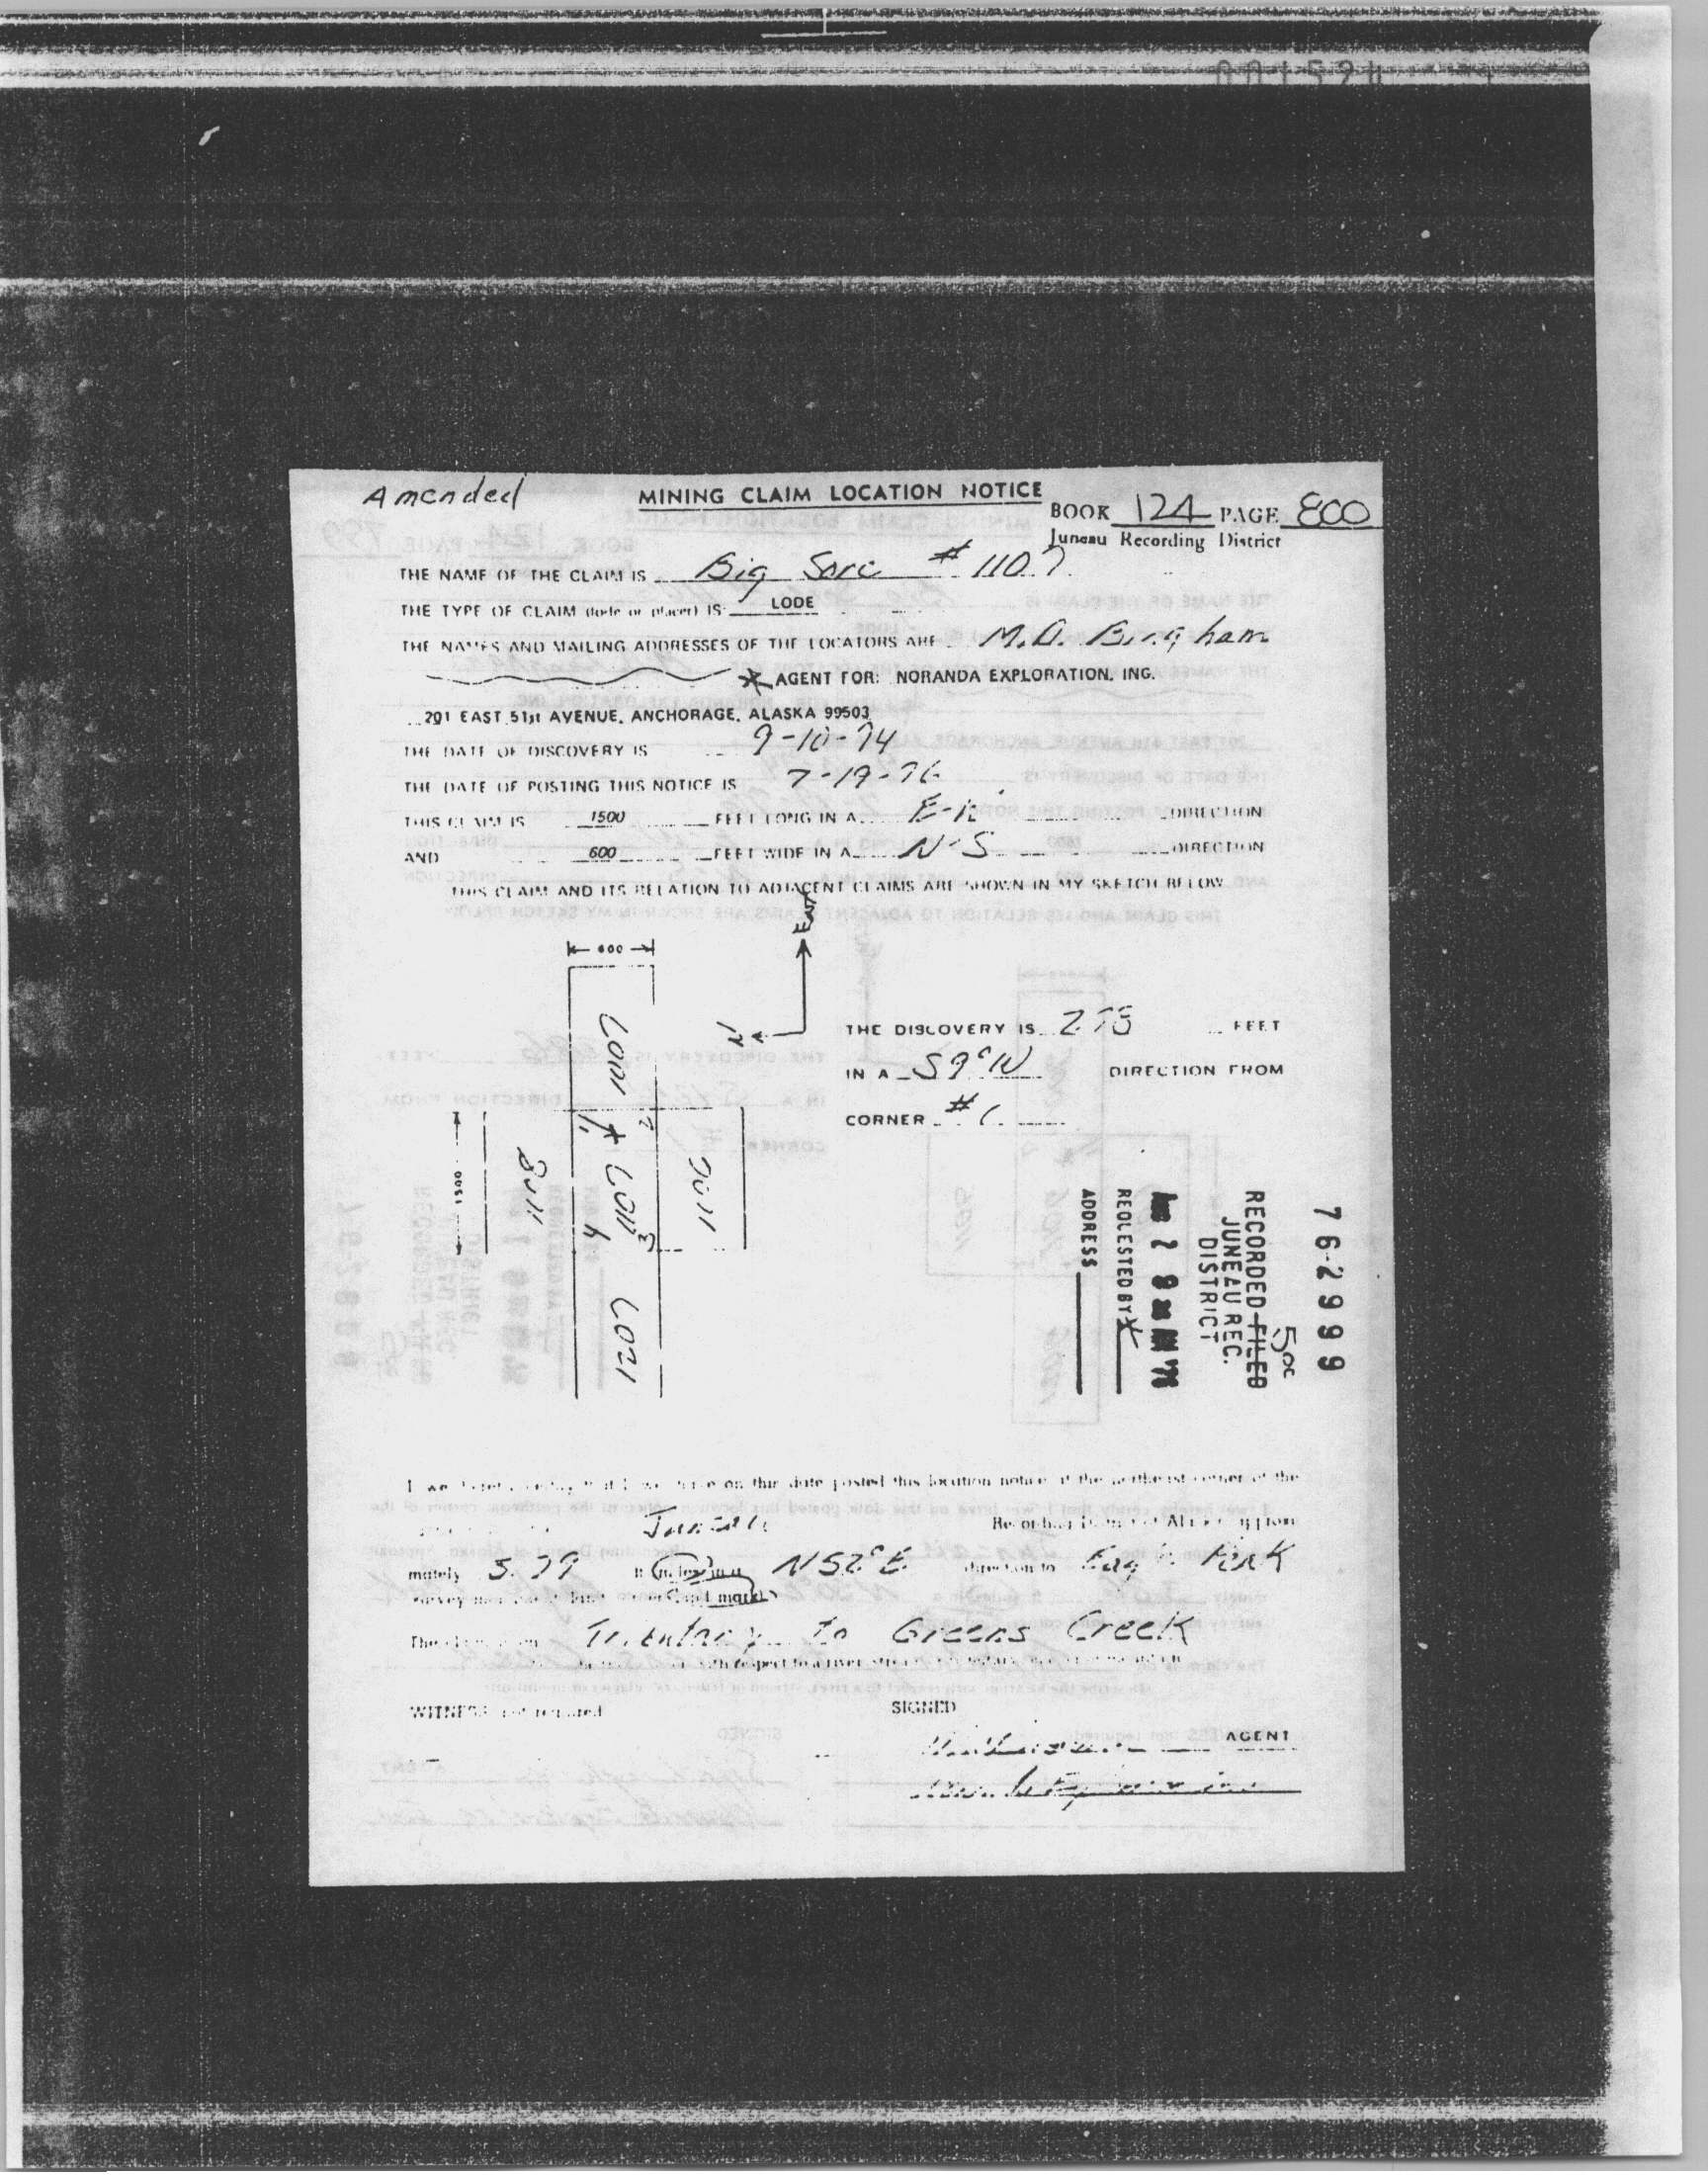 Amended
MINING CLAIM LOCATION NOTICE
BOOK 124 PAGE 800
Juneau Recording District
THE NAME OF THE CLAIM IS Big Sore # 1107
THE TYPE OF CLAIM (lode or placer) IS: LODE
THE NAMES AND MAILING ADDRESSES OF THE LOCATORS ARE M.D. Bingham
* AGENT FOR: NORANDA EXPLORATION, INC.
201 EAST 51st AVENUE, ANCHORAGE, ALASKA 99503
THE DATE OF DISCOVERY IS 9-10-74
THE DATE OF POSTING THIS NOTICE IS 7-19-76
THIS CLAIM IS 1500 FEET LONG IN A E-W DIRECTION
AND 600 FEET WIDE IN A N-S DIRECTION
THIS CLAIM AND ITS RELATION TO ADJACENT CLAIMS ARE SHOWN IN MY SKETCH BELOW
600
N
THE DISCOVERY IS 275 FEET
IN A S9°W DIRECTION FROM
CORNER # 1
1500
1
2
3
4
ADDRESS
REQUESTED BY *
RECORDED FILED
JUNEAU REC.
DISTRICT
76-2999
on this date posted this location notice at the northeast corner of the
Juneau Recording District of Alaska approxi
mately 5.79 miles in a N52°E direction to Eagle Peak
land mark)
The claim is on Tributary to Greens Creek
with respect to a river
WITNESS not required
SIGNED
AGENT